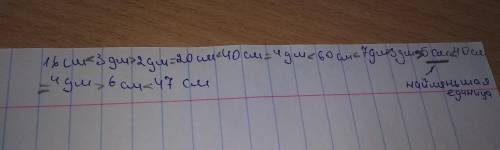 16 см < 3 дм > 2 дм = 20 см < 40 см = 4 дм < 60 см < 7 дм > 3 дм > 5 см < 40 см
= 4 дм > 6 см < 47 см
наименьшая
единица